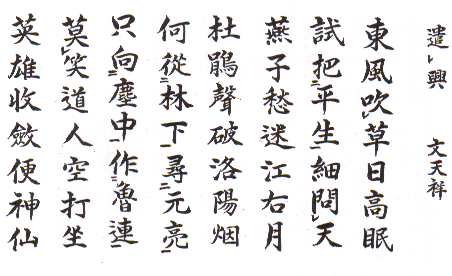 遣レ興 文天祥
東風吹レ草日高眠
試把二平生一細問レ天
燕子愁迷江右月
杜鵑聲破洛陽烟
何從二林下一尋二元亮一
只向二塵中一作二魯連一
莫レ笑道人空打坐
英雄收斂便神仙